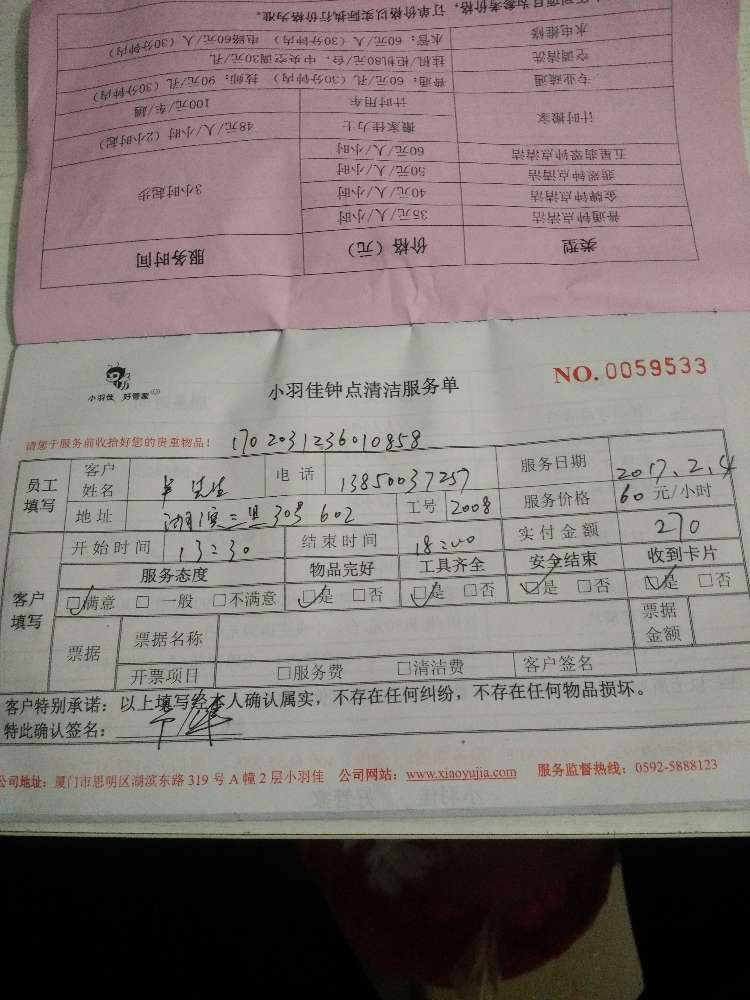 类型 价格（元） 服务时间
普通钟点清洁 35元/人/小时 3小时起步
金牌钟点清洁 40元/人/小时
翡翠钟点清洁 50元/人/小时
五星翡翠钟点清洁 60元/人/小时
计时搬家 搬家佳力士 48元/人/小时（2小时起）
计时用车 100元/车/趟
专业疏通 普通：60元/孔（30分钟内） 技师：90元/孔（30分钟内）
空调清洗 挂机/柜机80元/台，中央空调30元/孔
水电维修 水管：60元/人（30分钟内） 电路60元/人（30分钟内）
为参考价格，订单价格以实际执行价格为准。
小羽佳 好管家
小羽佳钟点清洁服务单
NO. 0059533
请您于服务前收拾好您的贵重物品！ 1702031236010858
员工填写 客户姓名 先生 电话 13850037257 服务日期 2017.2.4
地址 湖滨二里30号602 工号 2008 服务价格 60元/小时
客户填写 开始时间 13:30 结束时间 18:00 实付金额 270
服务态度 物品完好 工具齐全 安全结束 收到卡片
☑满意 □一般 □不满意 ☑是 □否 ☑是 □否 ☑是 □否 ☑是 □否
票据 票据名称 票据金额
开票项目 □服务费 □清洁费 客户签名
客户特别承诺：以上填写经本人确认属实，不存在任何纠纷，不存在任何物品损坏。
特此确认签名：
公司地址：厦门市思明区湖滨东路319号A幢2层小羽佳 公司网站：www.xiaoyujia.com 服务监督热线：0592-5888123